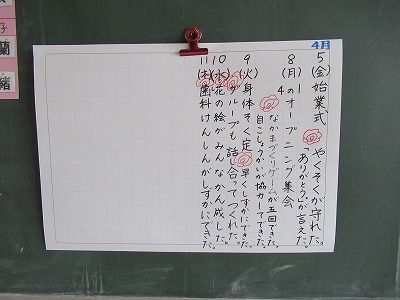 4月
5(金)始業式 やくそくが守れた。
「ありがとう」が言えた。
8(月)1の4オープニング集会
なかまづくりゲームが五回できた。
自こしょうかいが協力してできた。
9(火)身体そく定 早くしずかにできた。
グループも話し合ってつくれた。
10(水)花の絵がみんなかん成した。
11(木)歯科けんしんがしずかにできた。
蘭
緒